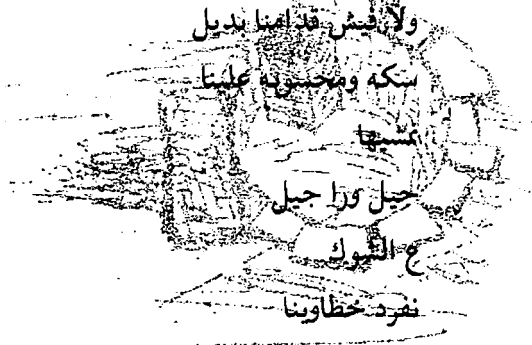 ولا فيش قدامنا بديل
سكه ومحسوبه علينا
نمشيها
جيل ورا جيل
ع الشوك
نفرد خطاوينا